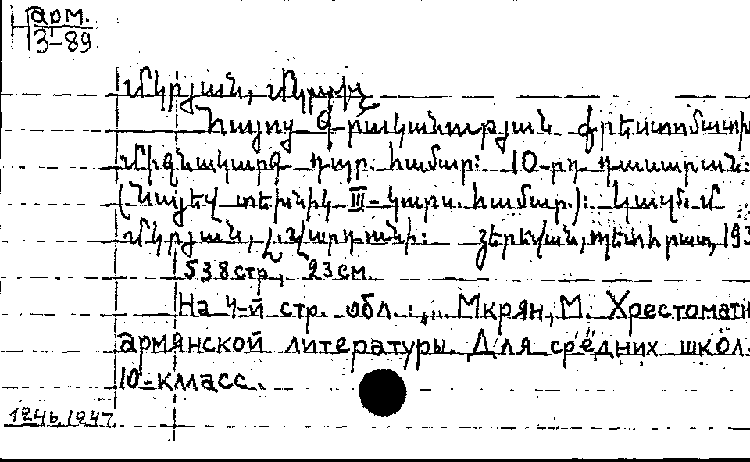 арм.
3-89
Մկրյան, Մկրտիչ
Հայոց գրականության քրեստոմատի
Միջնակարգ դպր. համար: 10-րդ դասարան:
(Նայև տեխնիկ III-կուրս. համար.): Կազմ. Մ
Մկրյան,
Երևան, Պետհրատ, 193
538 стр, 23 см.
На 4-й стр. обл.: Мкрян, М. Хрестомати
армянской литературы. Для средних школ.
10-класс.